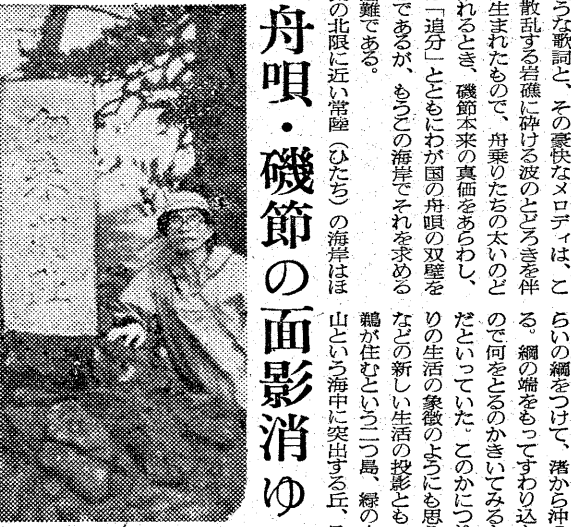 うな歌詞と、その豪快なメロディは、こ
散乱する岩礁に砕ける波のとどろきを伴
生まれたもので、舟乗りたちの太いのど
れるとき、磯節本来の真価をあらわし、
「追分」とともにわが国の舟唄の双璧を
であるが、もうこの海岸でそれを求める
難である。
の北限に近い常陸（ひたち）の海岸はほ
らいの綱をつけて、渚から沖
る。綱の端をもってすわり込
ので何をとるのかきいてみる
だといっていた。このかにつ
りの生活の象徴のようにも思
などの新しい生活の投影とも
鵜が住むという二つ島、緑の
山という海中に突出する丘、
舟唄・磯節の面影消ゆ